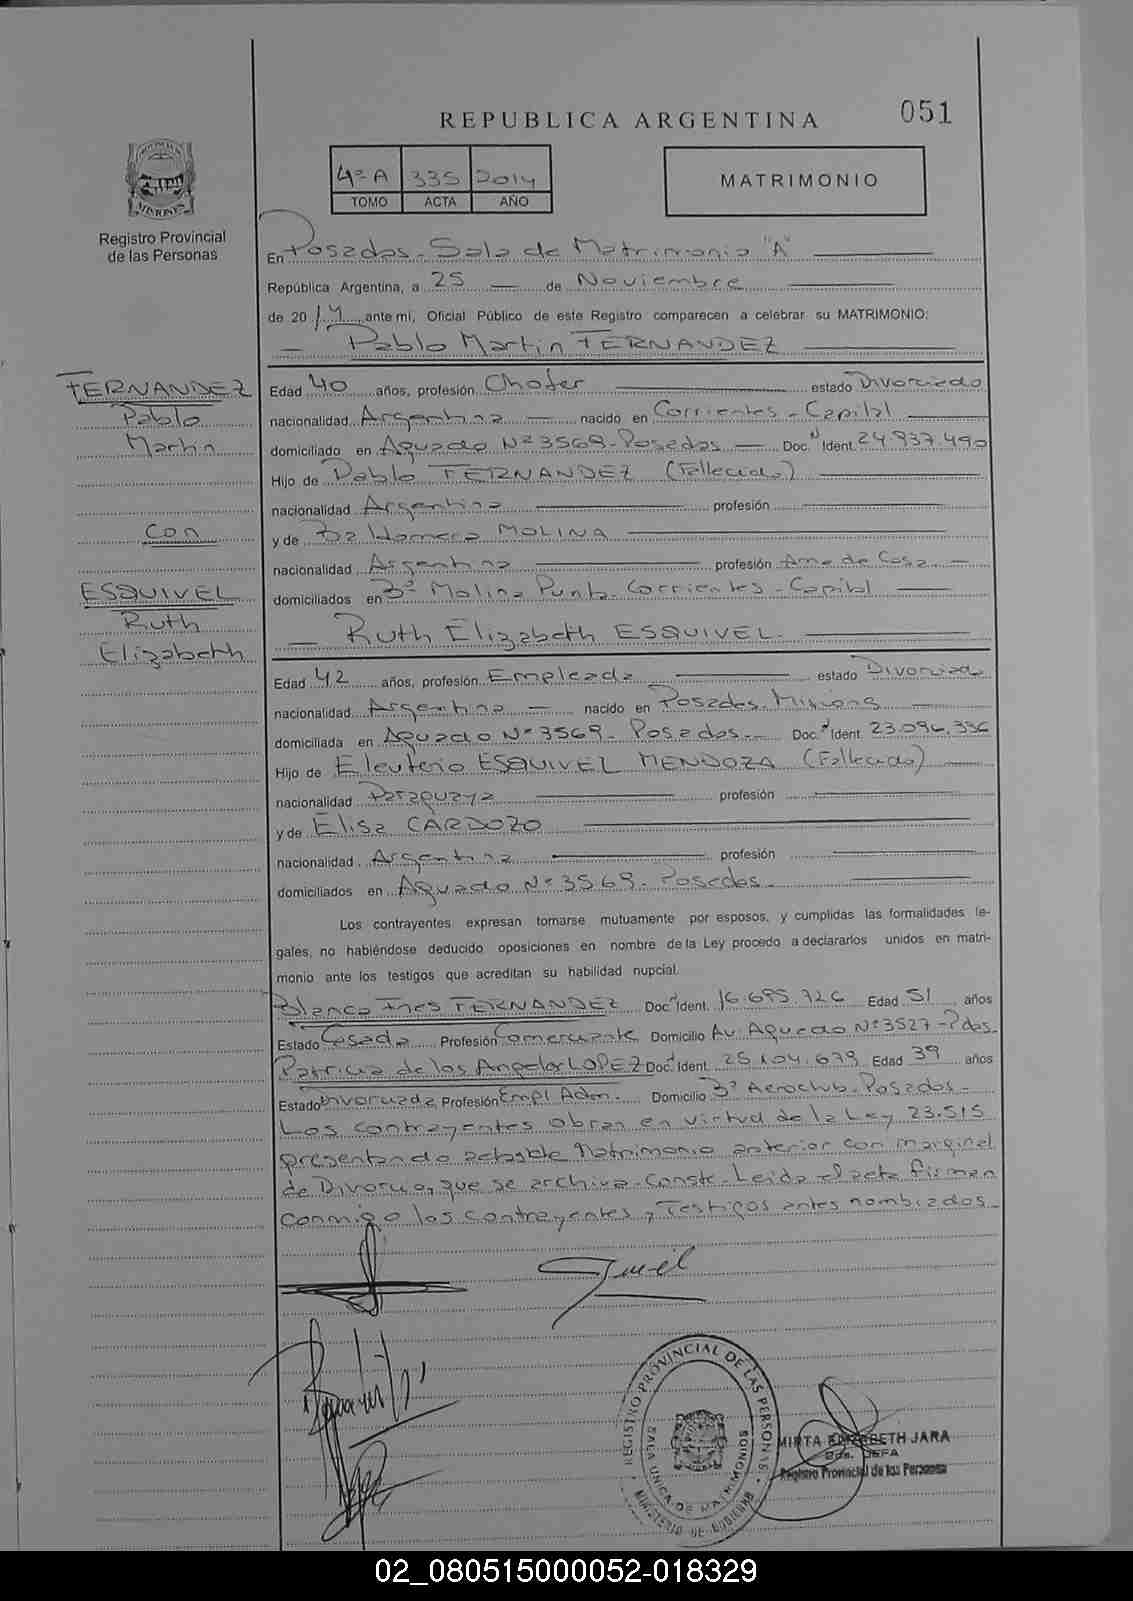 REPUBLICA ARGENTINA
051
4º A 335 2014
TOMO ACTA AÑO
MATRIMONIO
PROVINCIA DE
MISIONES
Registro Provincial
de las Personas
En Posadas - Sala de Matrimonio "A"
República Argentina, a 25 de Noviembre
de 2014 ante mi, Oficial Público de este Registro comparecen a celebrar su MATRIMONIO:
Pablo Martín FERNANDEZ
FERNANDEZ
Pablo
Martín
con
ESQUIVEL
Ruth
Elizabeth
Edad 40 años, profesión Chofer estado Divorciado
nacionalidad Argentina nacido en Corrientes - Capital
domiciliado en Aguado Nº 3569 - Posadas Doc. Ident. 24.937.490
Hijo de Pablo FERNANDEZ (Fallecido)
nacionalidad Argentina profesión
y de MOLINA
nacionalidad Argentina profesión Ama de Casa
domiciliados en Bº Molina Punta - Corrientes - Capital
Ruth Elizabeth ESQUIVEL
Edad 42 años, profesión Empleada estado Divorciada
nacionalidad Argentina nacido en Posadas - Misiones
domiciliada en Aguado Nº 3569 - Posadas Doc. Ident. 23.096.336
Hijo de Eleuterio ESQUIVEL MENDOZA (Fallecido)
nacionalidad Paraguaya profesión
y de Elisa CARDOZO
nacionalidad Argentina profesión
domiciliados en Aguado Nº 3569 - Posadas
Los contrayentes expresan tomarse mutuamente por esposos, y cumplidas las formalidades le-
gales, no habiéndose deducido oposiciones en nombre de la Ley procedo a declararlos unidos en matri-
monio ante los testigos que acreditan su habilidad nupcial.
Blanca Ines FERNANDEZ Doc. Ident. 16.695.726 Edad 51 años
Estado Casada Profesión Comerciante Domicilio Av. Aguado Nº 3527 - Pdas.
Patricia de los Angeles LOPEZ Doc. Ident. 25.104.679 Edad 39 años
Estado Divorciada Profesión Empl. Adm. Domicilio Bº Aeroclub - Posadas -
Los contrayentes obran en virtud de la Ley 23.515
presentando acta de Matrimonio anterior con marginal
de Divorcio, que se archiva - Conste - Leida el acta firman
conmigo los contrayentes y Testigos antes nombrados -
REGISTRO PROVINCIAL DE LAS PERSONAS
SALA UNICA DE MATRIMONIOS
MINISTERIO DE GOBIERNO
MIRTA ELIZABETH JARA
JEFA
Registro Provincial de las Personas
02_080515000052-018329